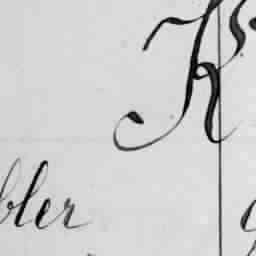 K
bler